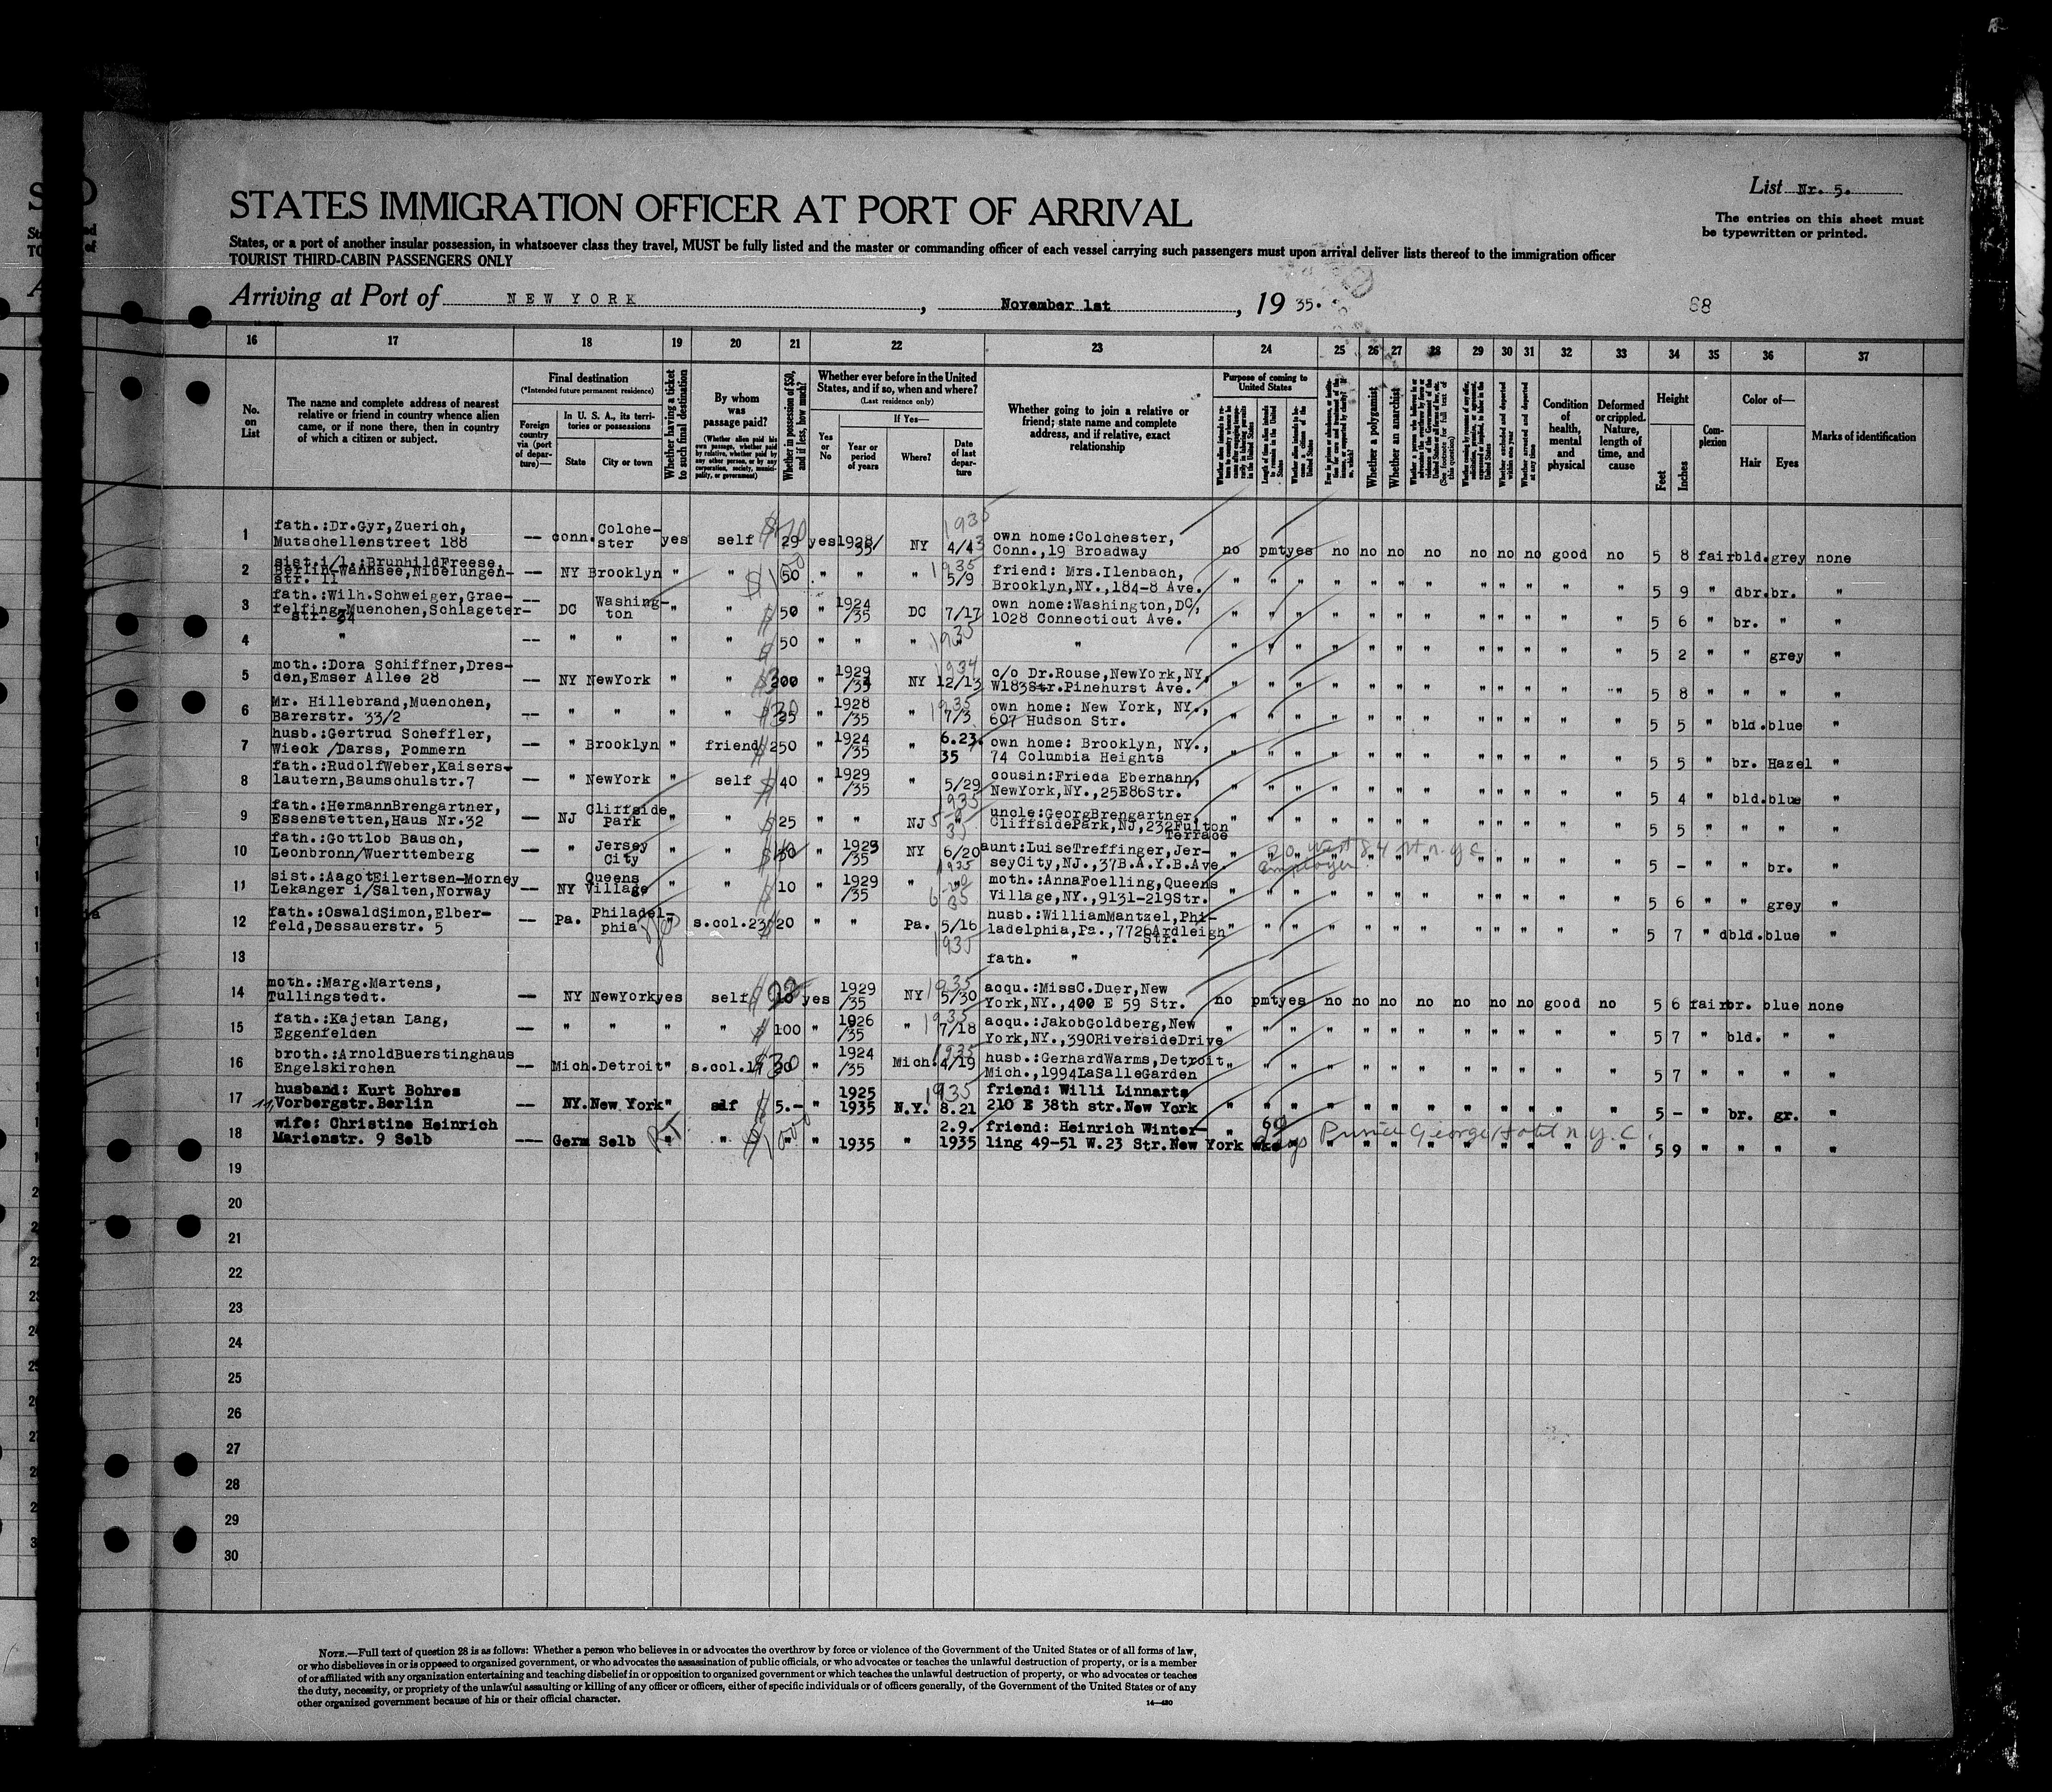 List Nr. 5.
The entries on this sheet must
be typewritten or printed.
STATES IMMIGRATION OFFICER AT PORT OF ARRIVAL
States, or a port of another insular possession, in whatsoever class they travel, MUST be fully listed and the master or commanding officer of each vessel carrying such passengers must upon arrival deliver lists thereof to the immigration officer
TOURIST THIRD-CABIN PASSENGERS ONLY
Arriving at Port of NEW YORK, November 1st, 19 35.
68
16 17 18 19 20 21 22 23 24 25 26 27 28 29 30 31 32 33 34 35 36 37
No. on List
The name and complete address of nearest
relative or friend in country whence alien
came, or if none there, then in country
of which a citizen or subject.
Final destination
(*Intended future permanent residence)
Foreign country via (port of departure)—
In U. S. A., its territories or possessions
State
City or town
Whether having a ticket to such final destination
By whom was passage paid?
(Whether alien paid his own passage, whether paid by relative, whether paid by any other person, or by any corporation, society, municipality, or government)
Whether in possession of $50, and if less, how much?
Whether ever before in the United States, and if so, when and where?
(Last residence only)
Yes or No
If Yes—
Year or period of years
Where?
Date of last departure
Whether going to join a relative or
friend; state name and complete
address, and if relative, exact
relationship
Purpose of coming to United States
Whether a polygamist
Whether an anarchist
Condition of health, mental and physical
Deformed or crippled. Nature, length of time, and cause
Height
Feet
Inches
Complexion
Color of—
Hair
Eyes
Marks of identification
1 father.:Dr.Gyr,Zuerich, Mutschellenstreet 188 -- conn. Colchester yes self 29 yes 1928/35 NY 4/4 1935 own home:Colchester, Conn.,19 Broadway no pmt yes no no no no no no no good no 5 8 fair bld. grey none
2 sist.i/l.:BrunhildFreese, Berlin-Wannsee,Nibelungen-str. 11 -- NY Brooklyn " " 50 " " " 5/9 1935 friend: Mrs.Ilenbach, Brooklyn,NY.,184-8 Ave. 5 9 " dbr. br. "
3 fath.:Wilh.Schweiger,Grae-felfing-Muenchen,Schlageter-str. 34 -- DC Washington " " 50 " 1924/35 DC 7/17 own home:Washington,DC, 1028 Connecticut Ave. 5 6 " br. " "
4 " -- " " " " 50 " " " 1935 " 5 2 " " grey "
5 moth.:Dora Schiffner,Dres-den,Emser Allee 28 -- NY NewYork " " 200 " 1929 NY 12/13 1934 c/o Dr.Rouse,NewYork,NY, W183Str.Pinehurst Ave. 5 8 " " " "
6 Mr. Hillebrand,Muenchen, Barerstr. 33/2 -- " " " " 35 " 1928/35 " 7/3 1935 own home: New York, NY., 607 Hudson Str. 5 5 " bld. blue "
7 husb.:Gertrud Scheffler, Wieck /Darss, Pommern -- " Brooklyn " friend 250 " 1924/35 " 6.23. 35 own home: Brooklyn, NY., 74 Columbia Heights 5 5 " br. Hazel "
8 fath.:RudolfWeber,Kaisers-lautern,Baumschulstr.7 -- " NewYork " self 40 " 1929/35 " 5/29 1935 cousin:Frieda Eberhahn, NewYork,NY.,25E86Str. 5 4 " bld. blue "
9 fath.:HermannBrengartner, Essenstetten,Haus Nr.32 -- NJ Cliffside Park " " 25 " " NJ uncle:GeorgBrengartner, CliffsidePark,NJ,232Fulton Terrace 5 5 " " " "
10 fath.:Gottlob Bausch, Leonbronn/Wuerttemberg -- " Jersey City " " " 1929/35 NY 6/20 1935 aunt:LuiseTreffinger,Jer-seyCity,NJ.,37B.A.Y.B.Ave. 20 West 84 St n.y.c. employer 5 - " " br. "
11 sist.:AagotEilertsen-Morney Lekanger i/Salten,Norway -- NY Queens Village " " 10 " 1929/35 " moth.:AnnaFoelling,Queens Village,NY.,9131-219Str. 5 6 " " grey "
12 fath.:OswaldSimon,Elber-feld,Dessauerstr. 5 -- Pa. Philadel-phia s.col.23 20 " " Pa. 5/16 1935 husb.:WilliamMantzel,Phi-ladelphia,Pa.,7726Ardleigh Str. 5 7 " dbld. blue "
13 fath. "
14 moth.:Marg.Martens, Tullingstedt. -- NY NewYork yes self yes 1929/35 NY 5/30 1935 acqu.:MissC.Duer,New York,NY.,400 E 59 Str. no pmt yes no no no no no no no good no 5 6 fair br. blue none
15 fath.:Kajetan Lang, Eggenfelden -- " " " " 100 " 1926/35 " 7/18 1935 acqu.:JakobGoldberg,New York,NY.,390RiversideDrive 5 7 " bld. " "
16 broth.:ArnoldBuerstinghaus Engelskirchen -- Mich. Detroit " s.col.17 20 " 1924/35 Mich. 4/19 1935 husb.:GerhardWarms,Detroit, Mich.,1994LaSalleGarden 5 7 " " " "
17 husband: Kurt Bohres Vorbergstr.Berlin -- NY. New York " self 5.- " 1925 1935 N.Y. 8.21 1935 friend: Willi Linnarts 210 E 38th str.New York 5 - " br. gr. "
18 wife: Christine Heinrich Marienstr. 9 Selb --- Germ Selb " " $1000 " 1935 " 2.9. 1935 friend: Heinrich Winter-ling 49-51 W.23 Str.New York 60 days Prince George Hotel n.y.C. 5 9 " " " "
19
20
21
22
23
24
25
26
27
28
29
30
NOTE.—Full text of question 28 is as follows: Whether a person who believes in or advocates the overthrow by force or violence of the Government of the United States or of all forms of law,
or who disbelieves in or is opposed to organized government, or who advocates the assassination of public officials, or who advocates or teaches the unlawful destruction of property, or is a member
of or affiliated with any organization entertaining and teaching disbelief in or opposition to organized government or which teaches the unlawful destruction of property, or who advocates or teaches
the duty, necessity, or propriety of the unlawful assaulting or killing of any officer or officers, either of specific individuals or of officers generally, of the Government of the United States or of any
other organized government because of his or their official character.
14—420